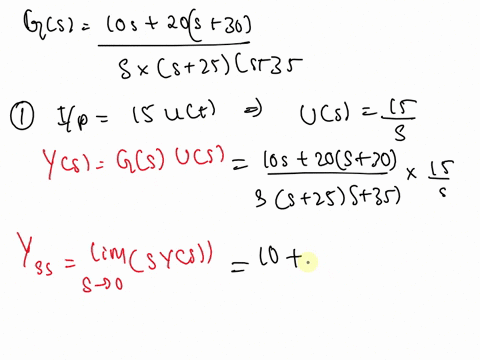 G(s) = 10s + 20(s+30)
s × (s+25) (s+35
① I/p = 15 u(t) ⇒ U(s) = 15/s
Y(s) = G(s) U(s) = 10s + 20(s+20) / s (s+25) s+35) × 15/s
Yss = lim (s Y(s)) = 10 +
s→0